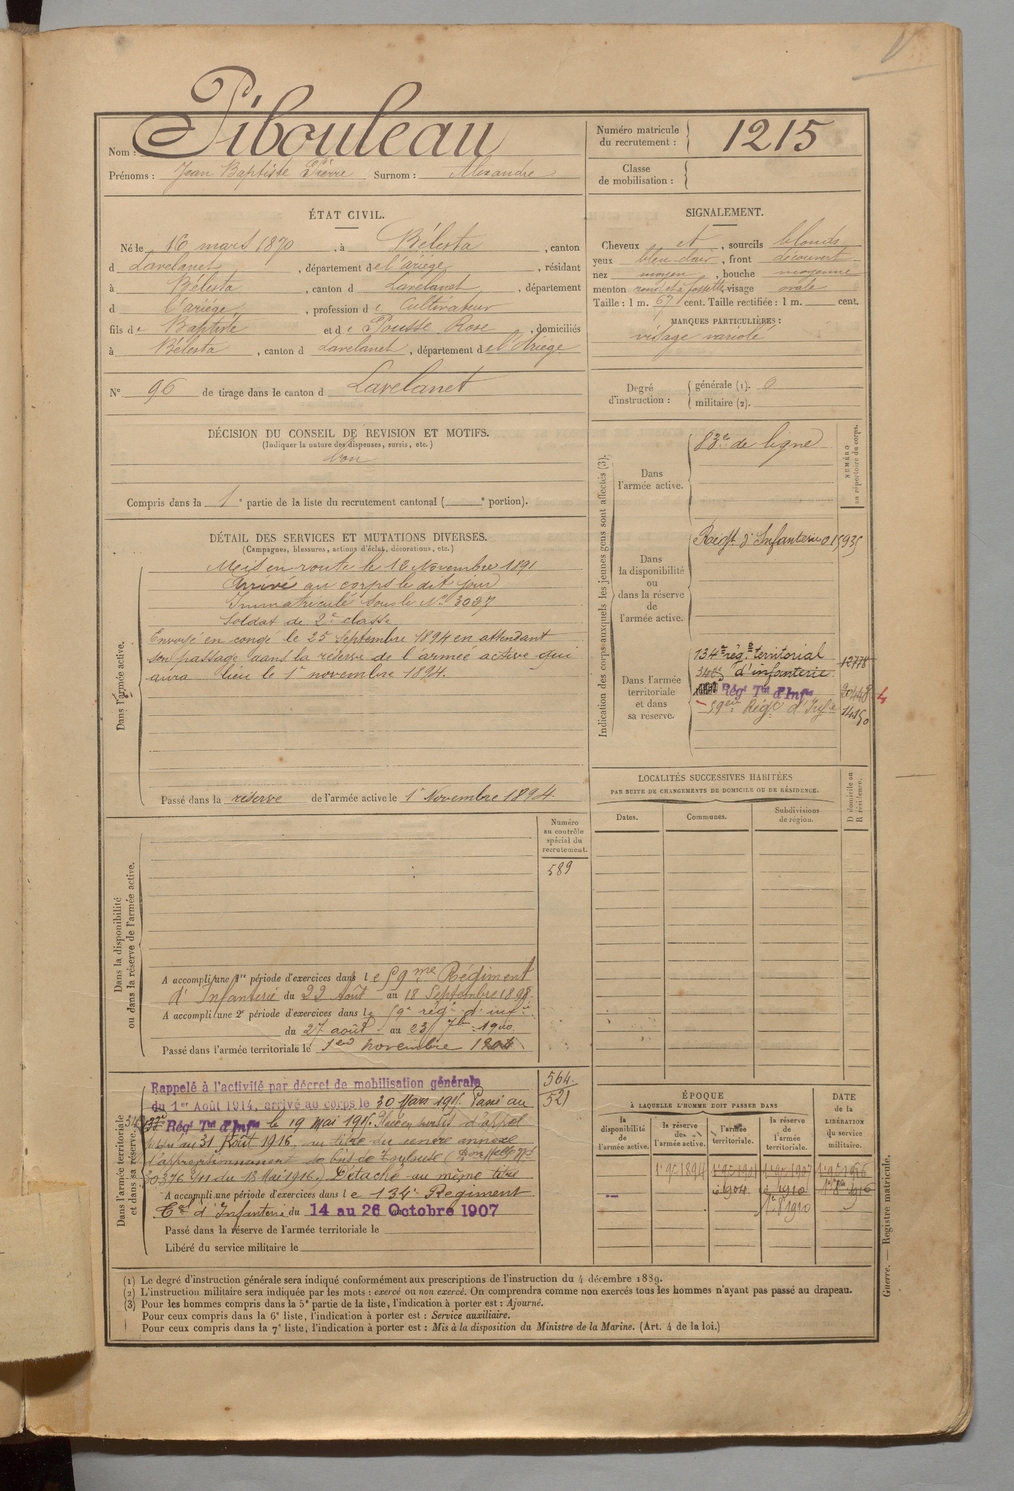 Nom : Pibouleau
Prénoms : Jean Baptiste Pierre Surnom : Alexandre
Numéro matricule du recrutement : 1215
Classe de mobilisation :
ÉTAT CIVIL.
Né le 16 mars 1870, à Bélesta, canton
d Lavelanet, département de l'ariège, résidant
à Bélesta, canton d Lavelanet, département
d l'ariège, profession de Cultivateur
fils de Baptiste et de Pousse Rose, domiciliés
à Bélesta, canton d Lavelanet, département de l'Ariège
N° 96 de tirage dans le canton d Lavelanet
SIGNALEMENT.
Cheveux et, sourcils blonds
yeux bleu clair, front découvert
nez moyen, bouche moyenne
menton rond et à fossette, visage ovale
Taille : 1 m. 67 cent. Taille rectifiée : 1 m. cent.
MARQUES PARTICULIÈRES :
visage variolé
Degré d'instruction : générale (1). 0
militaire (2).
DÉCISION DU CONSEIL DE REVISION ET MOTIFS.
(Indiquer la nature des dispenses, sursis, etc.)
bon
Compris dans la 1e partie de la liste du recrutement cantonal ( e portion).
DÉTAIL DES SERVICES ET MUTATIONS DIVERSES.
(Campagnes, blessures, actions d'éclat, décorations, etc.)
Dans l'armée active.
Mis en route le 16 Novembre 1891
Arrivé au corps le dit jour
Immatriculé sous le N° 3027
Soldat de 2e classe
Envoyé en congé le 25 Septembre 1894 en attendant
son passage dans la réserve de l'armée active qui
aura lieu le 1r novembre 1894.
Passé dans la réserve de l'armée active le 1r Novembre 1894.
Indication des corps auxquels les jeunes gens sont affectés (3).
NUMÉRO au répertoire du corps.
Dans l'armée active.
83e de ligne
Dans la disponibilité ou dans la réserve de l'armée active.
Régt. d'Infanterie 01593
Dans l'armée territoriale et dans sa réserve.
134e rég. territorial
d'infanterie 12778
Régt Tal d'Infie
59e Régt d'Infie
LOCALITÉS SUCCESSIVES HABITÉES
PAR SUITE DE CHANGEMENTS DE DOMICILE OU DE RÉSIDENCE.
Dates. Communes. Subdivisions de région. D domicile ou R résidence.
Dans la disponibilité ou dans la réserve de l'armée active.
Numéro au contrôle spécial du recrutement.
589
A accompli une 1re période d'exercices dans le 59me Régiment
d'Infanterie du 22 Août au 18 Septembre 1898.
A accompli une 2e période d'exercices dans le 59e rég. d'inf.
du 27 août au 23 7bre 1900
Passé dans l'armée territoriale le 1er novembre 1904
Dans l'armée territoriale et dans sa réserve.
564
521
Rappelé à l'activité par décret de mobilisation générale
du 1er Août 1914, arrivé au corps le 30 Mars 1915. Passé au
Régt Tal d'Infie le 19 mai 1915. d'appel
au 31 Août 1916, au titre du
l'approvisionnement de bois de
du 13 Mai 1916. Détaché au même titre
A accompli une période d'exercices dans le 134e Régiment
Tal d'Infanterie du 14 au 26 Octobre 1907
Passé dans la réserve de l'armée territoriale le
Libéré du service militaire le
ÉPOQUE
À LAQUELLE L'HOMME DOIT PASSER DANS
la disponibilité de l'armée active. la réserve de l'armée active. l'armée territoriale. la réserve de l'armée territoriale.
DATE de la LIBÉRATION du service militaire.
1r 9bre 1894
1904 1910
(1) Le degré d'instruction générale sera indiqué conformément aux prescriptions de l'instruction du 4 décembre 1889.
(2) L'instruction militaire sera indiquée par les mots : exercé ou non exercé. On comprendra comme non exercés tous les hommes n'ayant pas passé au drapeau.
(3) Pour les hommes compris dans la 5e partie de la liste, l'indication à porter est : Ajourné.
Pour ceux compris dans la 6e liste, l'indication à porter est : Service auxiliaire.
Pour ceux compris dans la 7e liste, l'indication à porter est : Mis à la disposition du Ministre de la Marine. (Art. 4 de la loi.)
Guerre. — Registre matricule.